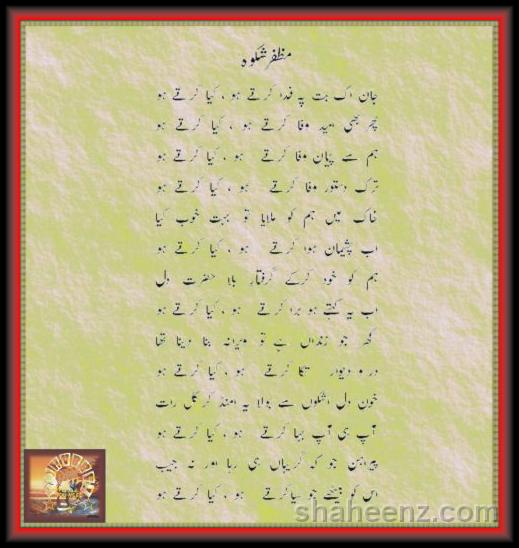 مظفر شکوہ
جان اک بت پہ فدا کرتے ہو ، کیا کرتے ہو
پھر بھی امید وفا کرتے ہو ، کیا کرتے ہو
ہم سے پیمان وفا کرتے ہو ، کیا کرتے ہو
ترک دستور وفا کرتے ہو ، کیا کرتے ہو
خاک میں ہم کو ملایا تو بہت خوب کیا
اب پشیمان ہوا کرتے ہو ، کیا کرتے ہو
ہم کو خود کرکے گرفتار بلا حضرت دل
اب یہ کہتے ہو برا کرتے ہو ، کیا کرتے ہو
گھر جو زنداں ہے تو ویرانہ بنا دینا تھا
در و دیوار تکا کرتے ہو ، کیا کرتے ہو
خون دل اشکوں سے بولا یہ امنڈ کر کل رات
آپ ہی آپ بہا کرتے ہو ، کیا کرتے ہو
پیراہن جو کہ گریباں ہی رہا اور نہ جیب
اس کو بیٹھے جو سیا کرتے ہو ، کیا کرتے ہو
shaheenz.com